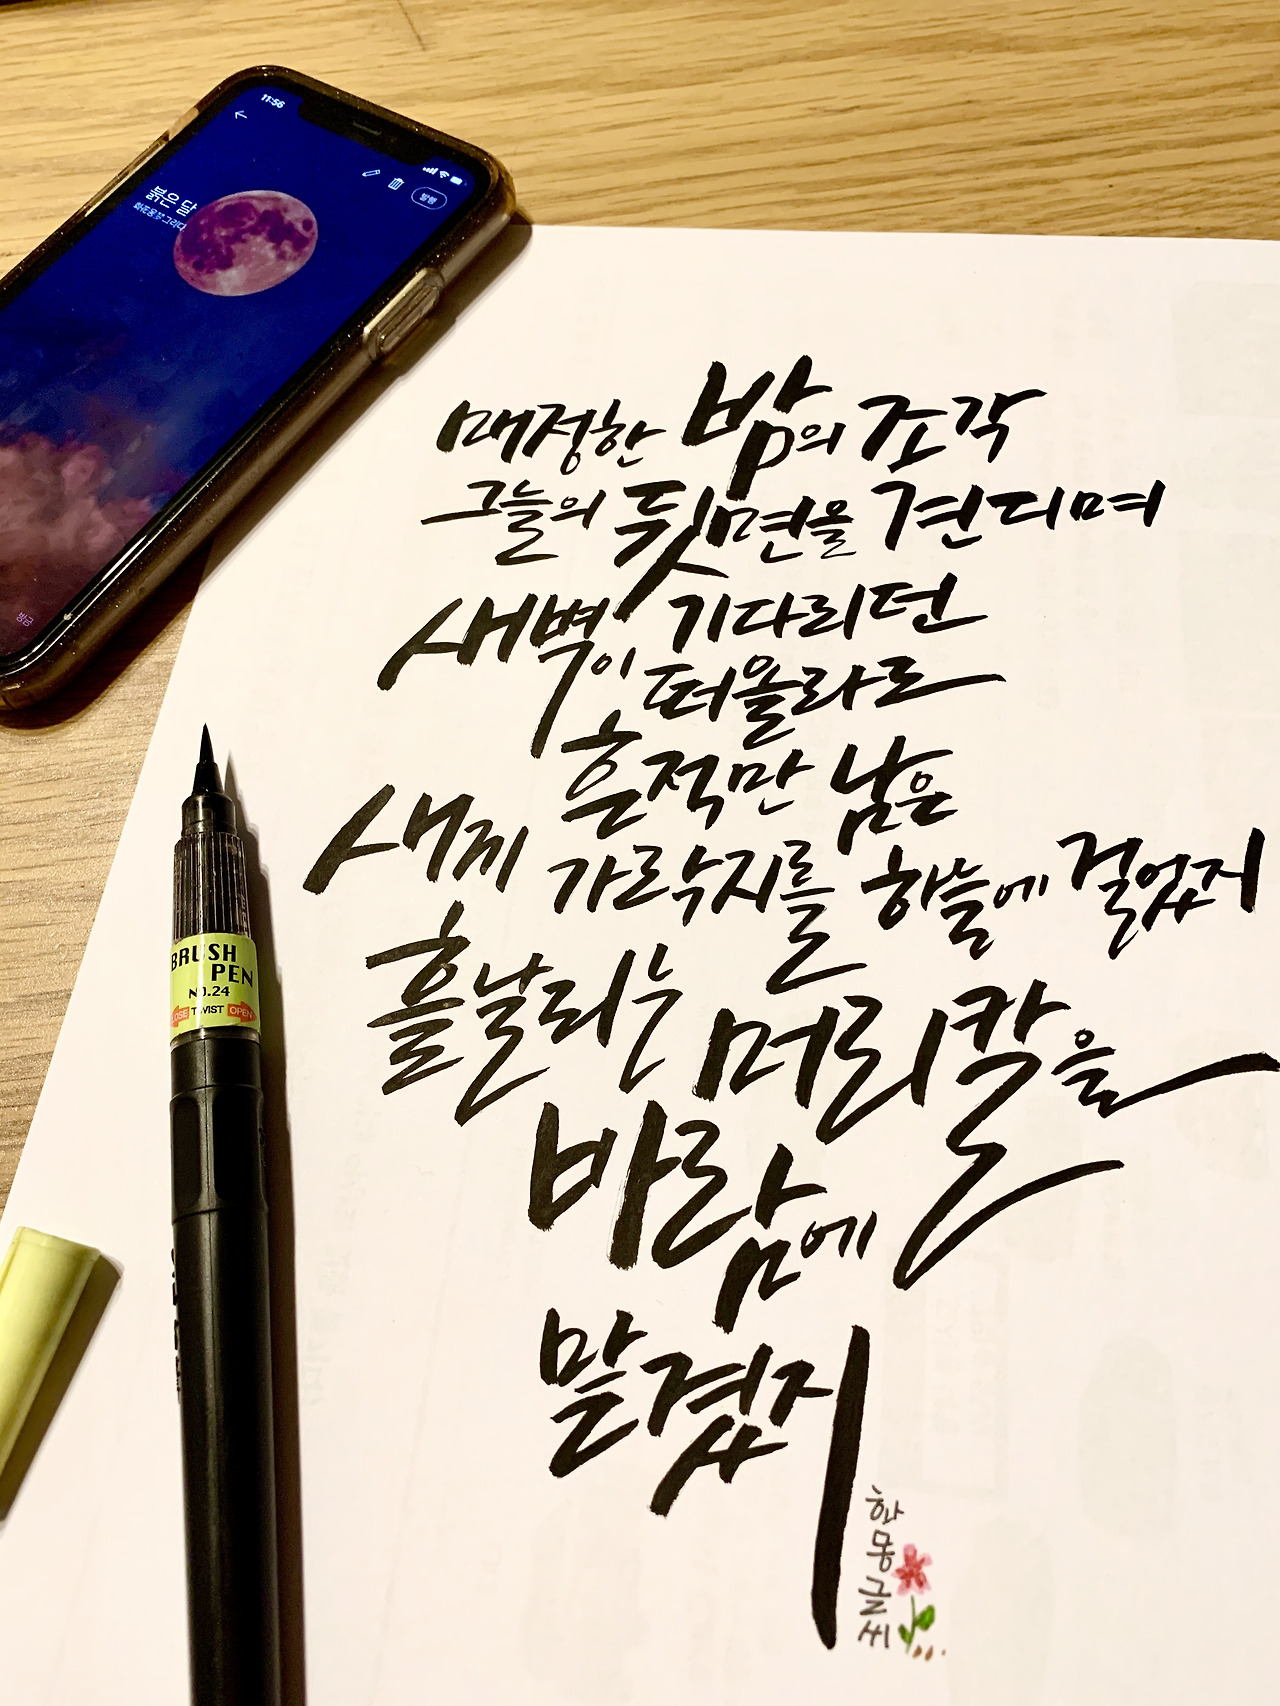 11:56
발행
붉은 달
방금
매정한 밤의 조각
그늘의 뒷면을 견디며
새벽이 기다리던
떠올라로
흔적만 남은
새끼 가락지를 하늘에 걸었지
흩날리는 머리칼을
바람에
맡겼지
화몽글씨
BRUSH
PEN
NO.24
CLOSE TWIST OPEN